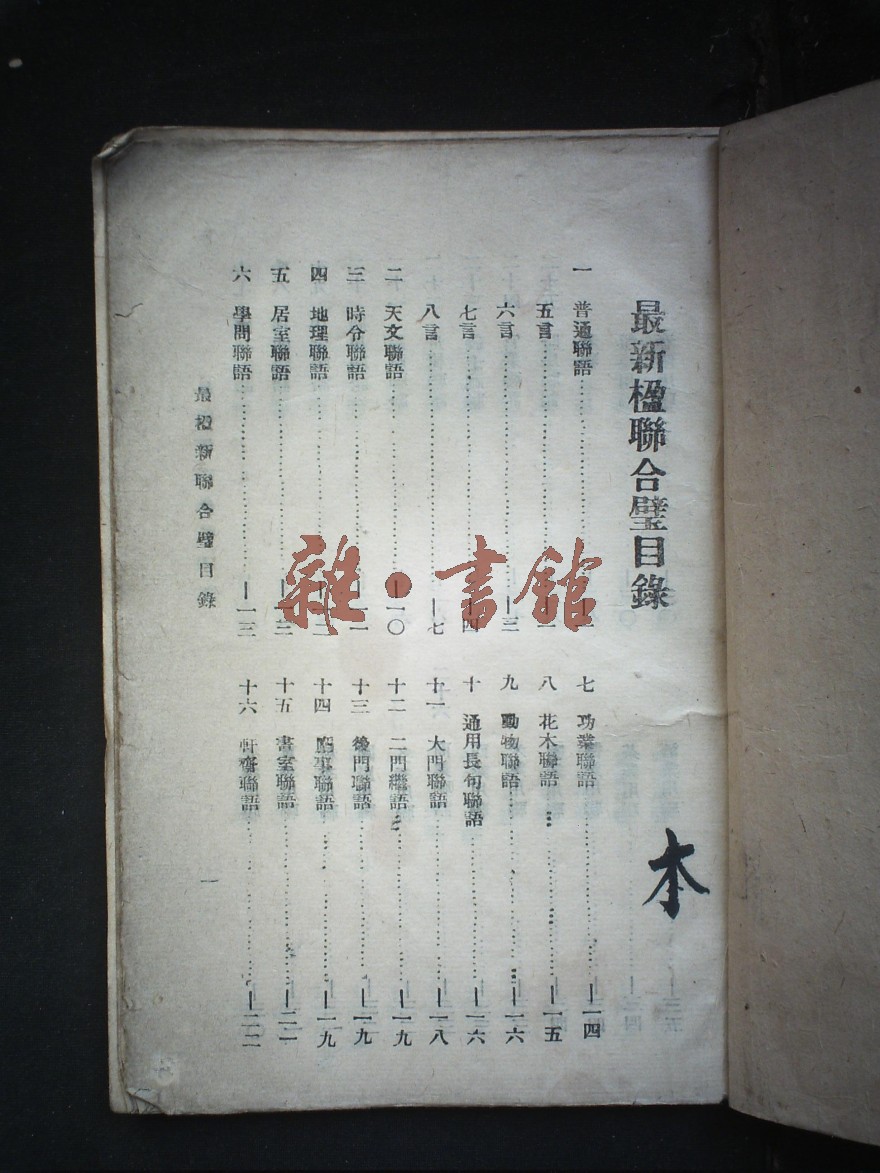 最新楹聯合璧目錄
本
一 普通聯語……—一
五言……一
六言……—三
七言……—四
八言……—七
二 天文聯語……—一〇
三 時令聯語……—一一
四 地理聯語……—一二
五 居室聯語……
六 學問聯語……—一三
七 功業聯語……—一四
八 花木聯語……—一五
九 動物聯語……—一六
十 通用長句聯語……—一六
十一 大門聯語……—一八
十二 二門繼語……—一九
十三 後門聯語……—一九
十四 廳事聯語……—一九
十五 書室聯語……—二一
十六 軒齋聯語……—二二
最楹新聯合璧目錄
一
雜·書館